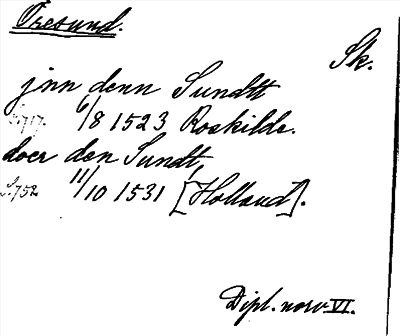 Øresund.
Sk.
jnn denn Sundtt
S. 717. 6/8 1523 Roskilde.
doer den Sundt,
S. 752 11/10 1531 [Holland].
Dipl. norv VI.